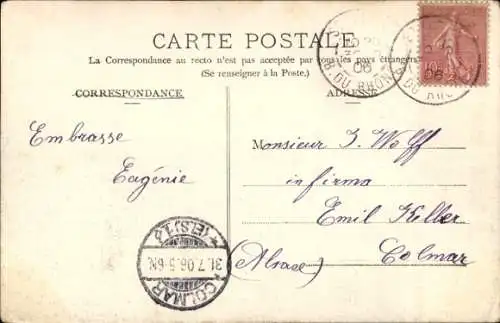 CARTE POSTALE
La Correspondance au recto n'est pas acceptée par tous les pays étrangers
(Se renseigner à la Poste.)
CORRESPONDANCE
ADRESSE
Embrasse
Eugénie
Monsieur J. Wolff
in firma
Emil Keller
Colmar
(Alsace)
06
B. DU RHONE
10
COLMAR
31.7.06.5-6N.
*(ELS)1*